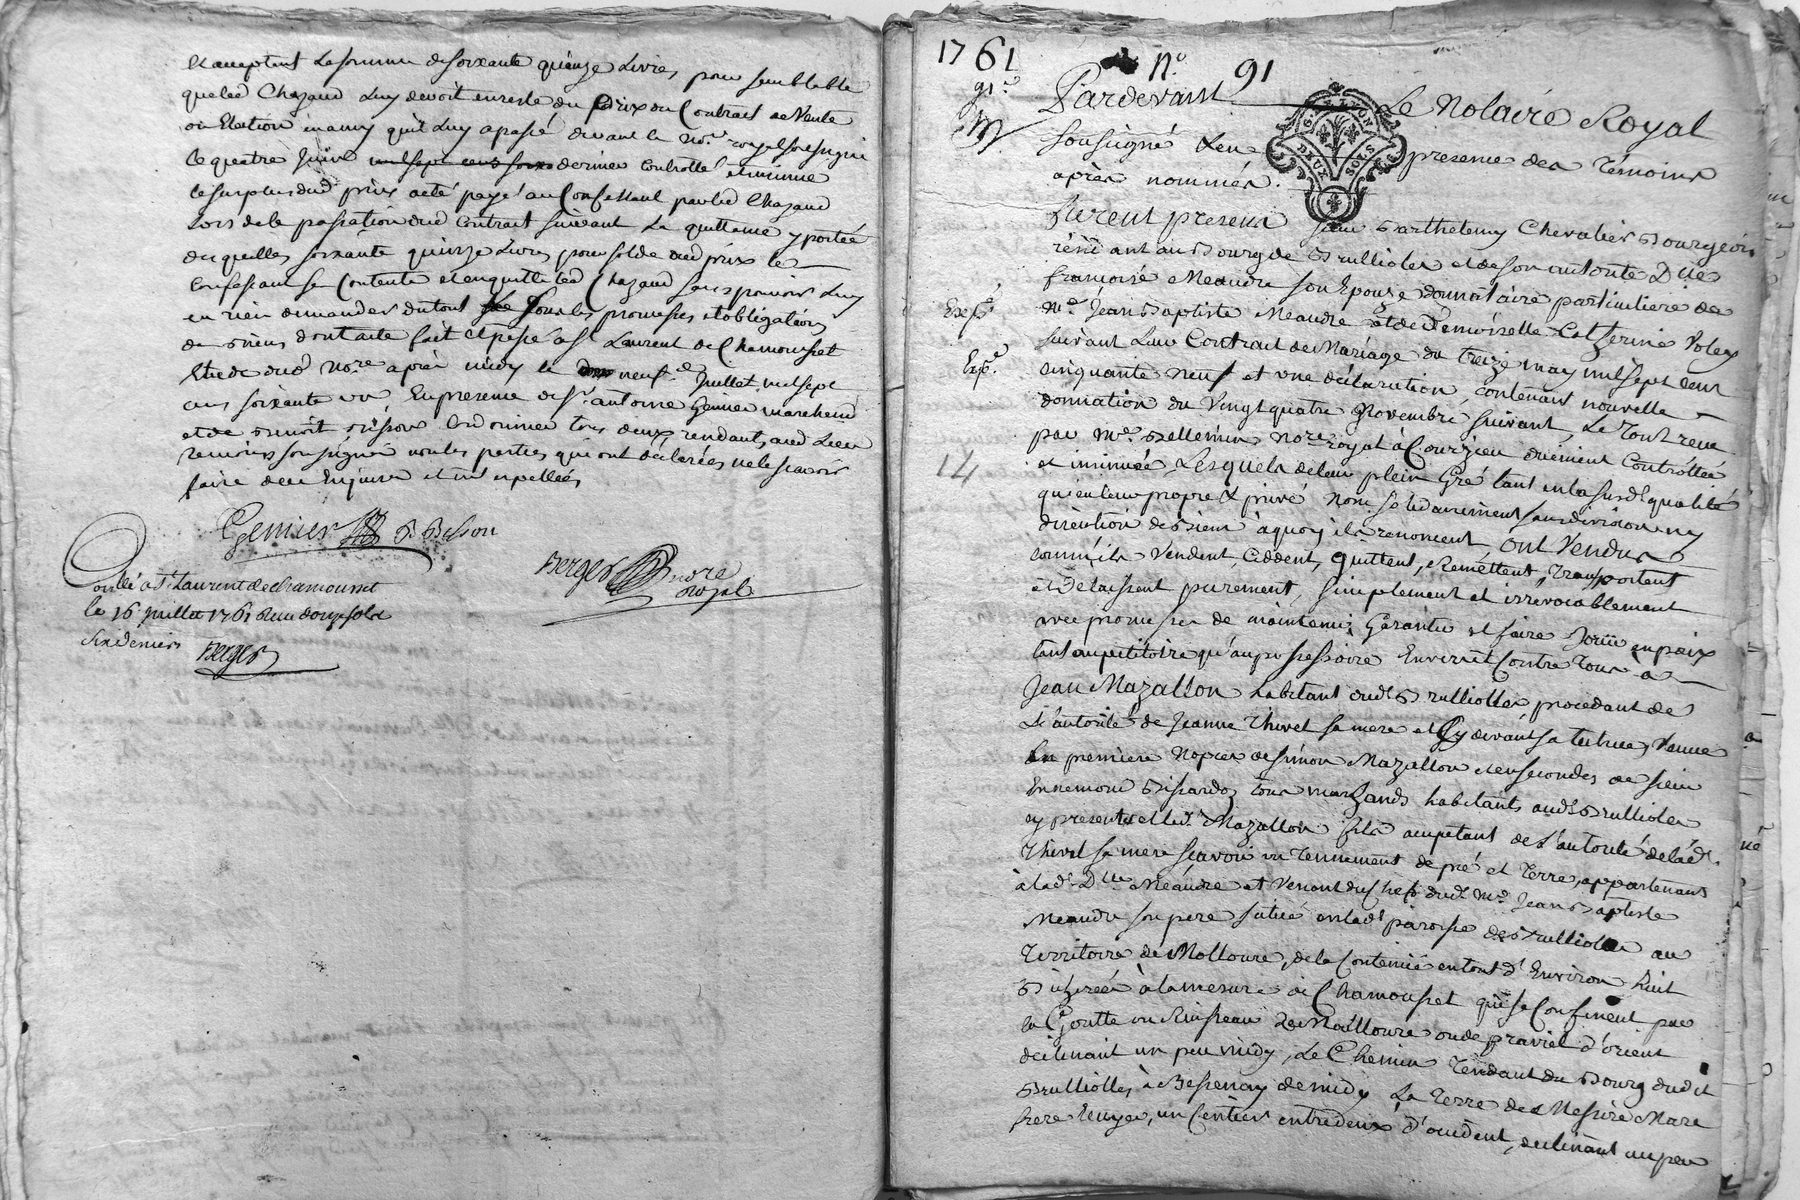 et acceptant la somme de soixante quinze Livres, pour semblable
que led Chazaud Luy devoit en reste du prix du Contrat de Vente
ou Election en amy qu'il Luy a passé devant le No.re royal soussigné
le quatre Juin mil sept cens soix dernier Controllé
le surplus dud prix a eté payé au Confessant par led Chazaud
Lors de la passation dud Contrat suivant La quittance y portée
desquelles soixante quinze Livres pour solde dud prix le
Confessant se Contente et en quitte led Chazaud sans pouvoir Luy
en rien demander du tout sous les promesses et obligations
de biens dont acte fait et passé a St Laurent de Chamousset
Etude dud No.re après midy le neuf.e Juillet mil sept
cens soixante un En presence de Sr. antoine Genier marchand
et de benoit Besson Cordonnier tous deux
temoins soussignés non les parties qui ont declarées ne le scavoir
faire de ce Enquises et interpellées,
Genier B Besson
Berger no.re royal
Con.lé a St. Laurent de Chamousset
le 16 juillet 1761 Reçu douze sols
six deniers Berger
1761 N.o 91
91.e
Pardevant Le Notaire Royal
G. LYON
DEUX SOLS
soussigné & en presence des Témoins
après nommés.
furent presens sieur Barthelemy Chevalier Bourgeois
résidant au Bourg de Brulliolles et de son autorité D.lle
francoise Meaudre son Epouse donnataire particuliere de
Exp.é
M.e Jean Baptiste Meaudre et de Demoiselle Catherine Volay
suivant Leur Contrat de Mariage du treize may mil sept cens
Exp.é
cinquante neuf et une déclaration, contenant nouvelle
donnation du Vingt quatre Novembre suivant Le Tout reçu
par M.e Bellemin No.re royal à Courzieu duëment Controllée
14
et insinuée, Lesquels de leur plein Gré tant en la susd.e qualité
qu'en leur propre & privé Nom solidairement sans division ny
discution de biens à quoy ils renoncent ont Vendus
comme ils Vendent, Ceddent, quittent, Remettent, Transportent
et Délaissent purement, simplement et irrevocablement
avec promesses de maintenir Garantir et faire Jouïr en paix
tant au petitoire qu'au possessoire Envers et Contre Tous a
Jean Mazallon habitant aud. Brulliolles procédant de
L'autorité de Jeanne Thivel sa mere et Cy devant sa tutrice, Veuve
en premiere Nopces de Simon Mazallon et en secondes de sieur
Ennemond Bissardon tous marchands habitants aud. Brulliolles
cy presents et led. Mazallon fils acceptant de L'autorité de lad.
Thivel sa mere scavoir un Tennement de pré et Terre, appartenant
à lad. D.lle Meaudre et Venant du Chef dud. M.e Jean Baptiste
Meaudre son pere situé en lad. paroisse de Brulliolles au
Territoire de Molloure, de la Contenue en tout d'Environ huit
Bicherées à la mesure de Chamousset qui se Confinent par
la Goutte ou Ruisseau de Molloure ou de praviel d'orient
declinant un peu midy, Le Chemin Tendant du Bourg dudit
Brulliolles, à Bessenay de midy La Terre de Messire Marc
un Sentier entredeux d'occident, declinant un peu